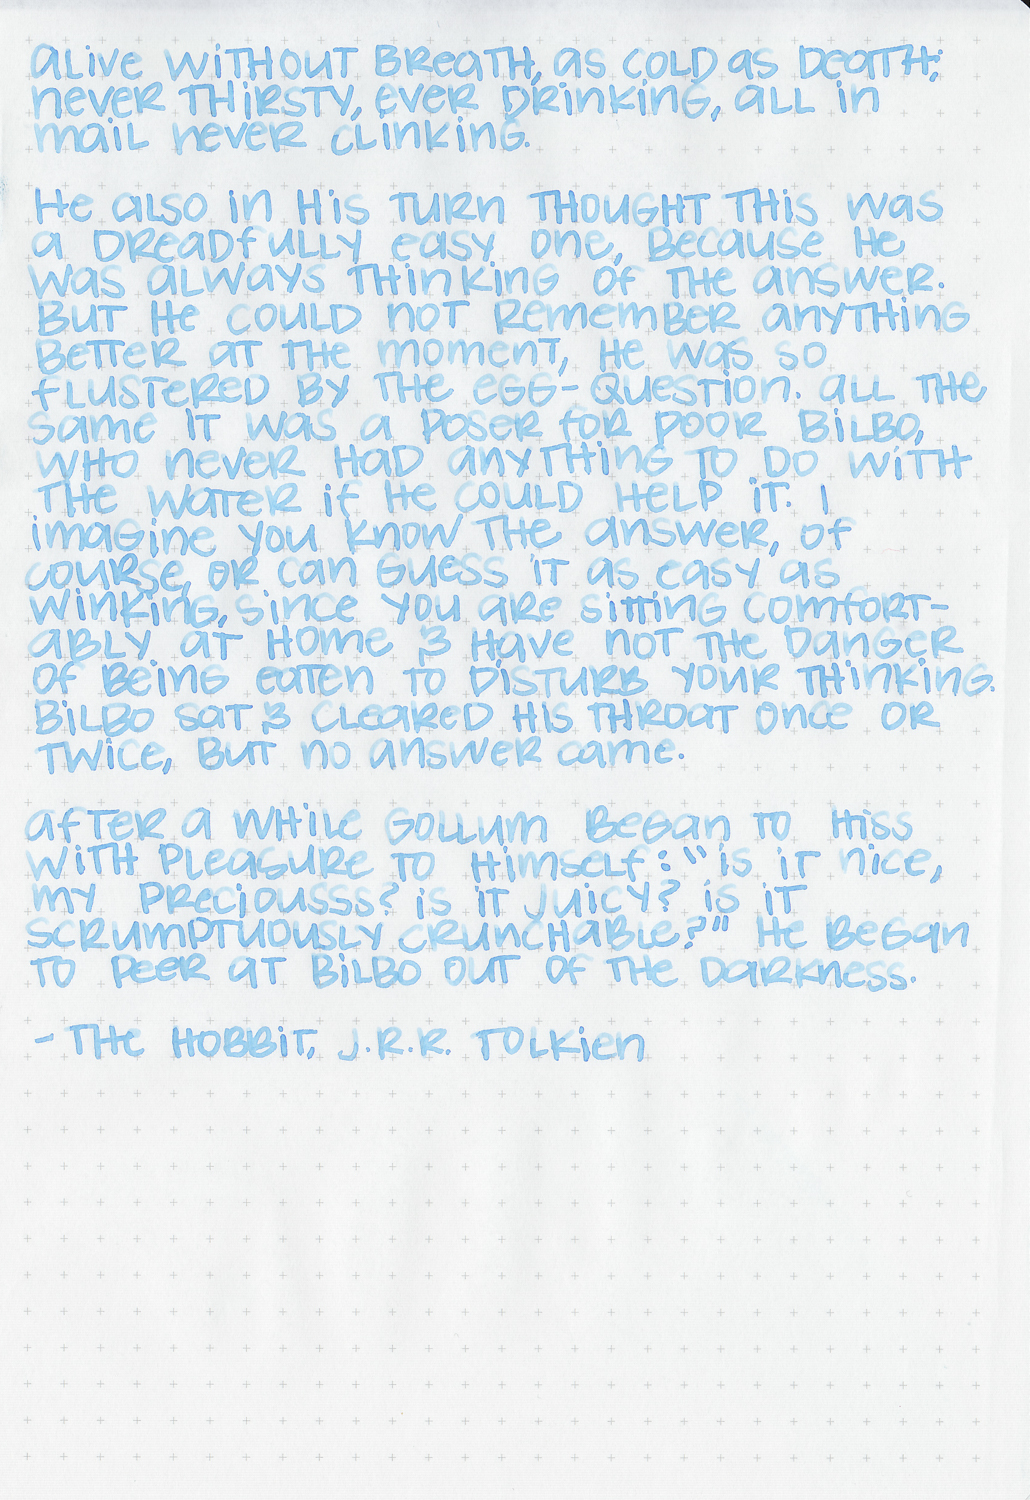 alive without breath, as cold as death;
never thirsty, ever drinking, all in
mail never clinking.
He also in his turn thought this was
a dreadfully easy one, because he
was always thinking of the answer.
But he could not remember anything
better at the moment, he was so
flustered by the egg-question. all the
same it was a poser for poor Bilbo,
who never had anything to do with
the water if he could help it. I
imagine you know the answer, of
course, or can guess it as easy as
winking, since you are sitting comfort-
ably at home & have not the danger
of being eaten to disturb your thinking.
Bilbo sat & cleared his throat once or
twice, but no answer came.
after a while Gollum began to hiss
with pleasure to himself: "is it nice,
my preciousss? is it juicy? is it
scrumptuously crunchable?" He began
to peer at Bilbo out of the darkness.
- The Hobbit, J.R.R. Tolkien